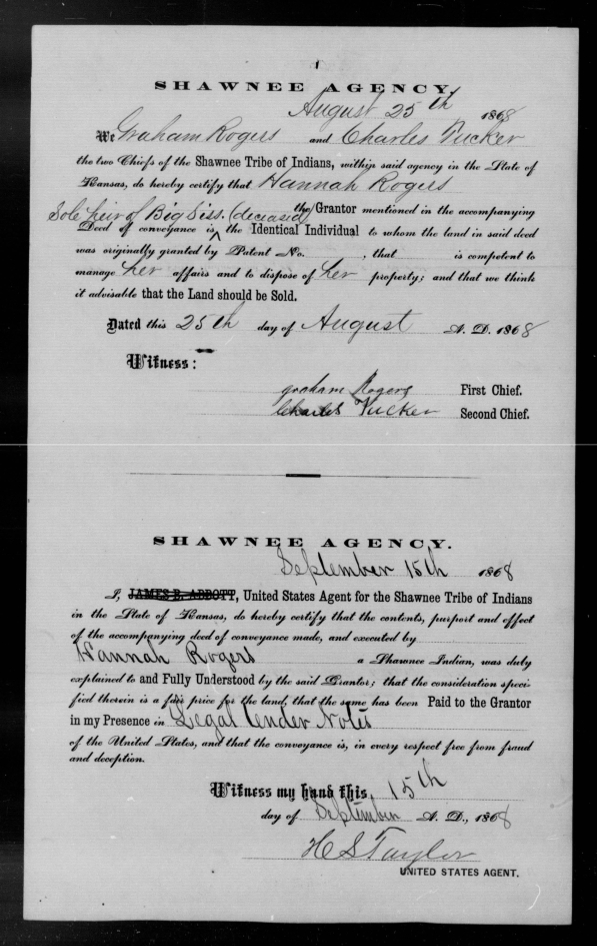 SHAWNEE AGENCY,
August 25th 1868
We Graham Rogers and Charles Tucker
the two Chiefs of the Shawnee Tribe of Indians, within said agency in the State of
Kansas, do hereby certify that Hannah Rogers
Sole heir of Big Siss. (deceased) the Grantor mentioned in the accompanying
Deed of conveyance is ‸ the Identical Individual to whom the land in said deed
was originally granted by Patent No. , that is competent to
manage her affairs and to dispose of her property; and that we think
it advisable that the Land should be Sold.
Dated this 25th day of August A. D. 1868
Witness:
graham Rogers First Chief.
Charles Tucker Second Chief.
SHAWNEE AGENCY.
September 15th 1868
I, JAMES B. ABBOTT, United States Agent for the Shawnee Tribe of Indians
in the State of Kansas, do hereby certify that the contents, purport and effect
of the accompanying deed of conveyance made, and executed by
Hannah Rogers a Shawnee Indian, was duly
explained to and Fully Understood by the said Grantor; that the consideration speci-
fied therein is a fair price for the land, that the same has been Paid to the Grantor
in my Presence in Legal tender Notes
of the United States, and that the conveyance is, in every respect free from fraud
and deception.
Witness my hand this, 15th
day of September A. D., 1868
H S Taylor
UNITED STATES AGENT.